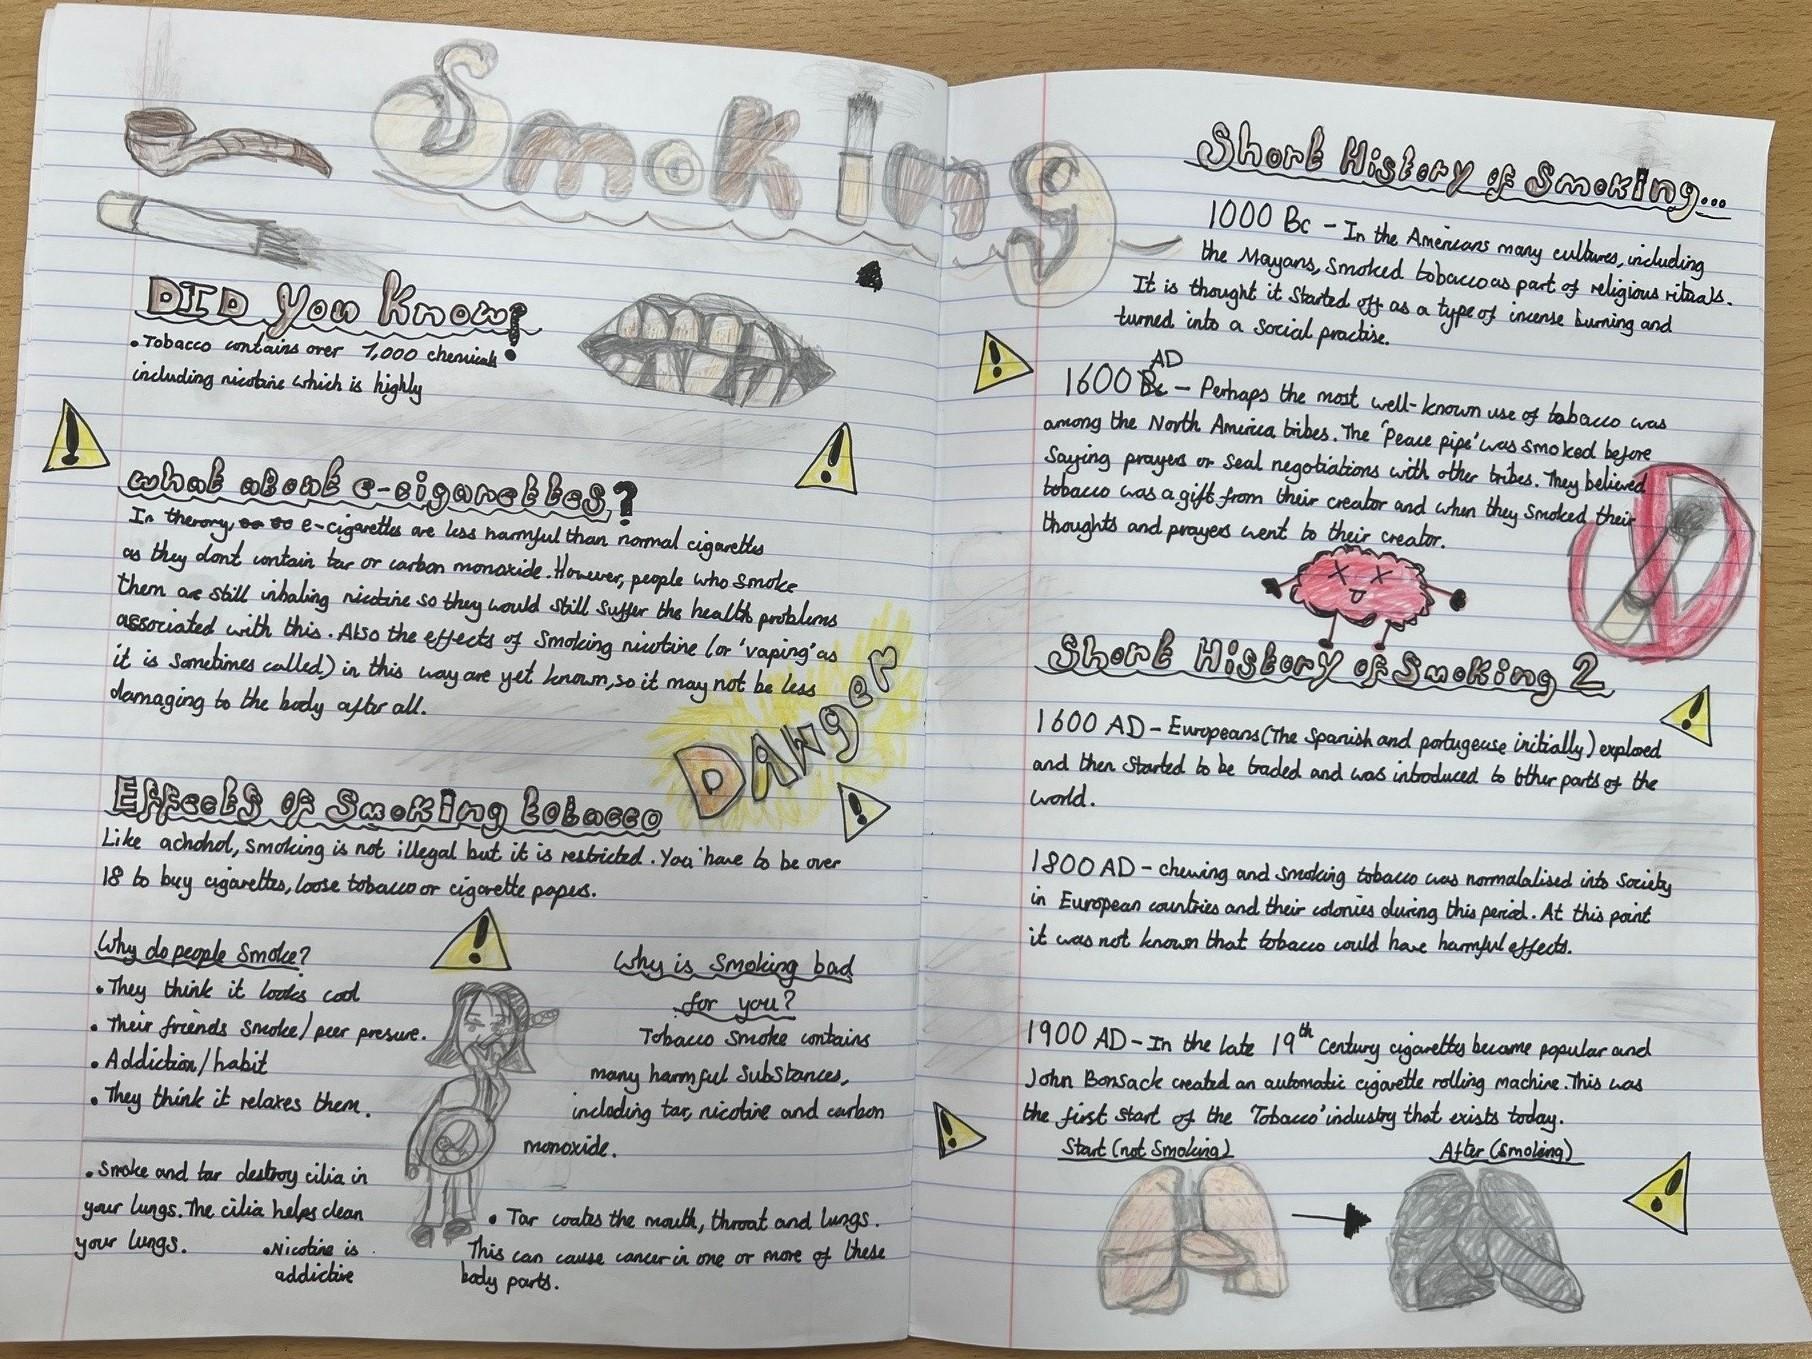 Smoking
DID You Know?
• Tobacco contains over 7,000 chemicals
including nicotine which is highly
what about e-cigarettes?
In therory, e-cigarettes are less harmful than normal cigarettes
as they dont contain tar or carbon monoxide. However, people who smoke
them are still inhaling nicotine so they would still suffer the health problems
associated with this. Also the effects of smoking nicotine (or 'vaping' as
it is sometimes called) in this way are yet known, so it may not be less
damaging to the body after all.
DANger
Effects of smoking tobacco
Like achohol, smoking is not illegal but it is restricted. You have to be over
18 to buy cigarettes, loose tobacco or cigarette papers.
Why do people smoke?
• They think it looks cool
• Their friends smoke/peer presure.
• Addiction/habit
• They think it relaxes them.
• Smoke and tar destroy cilia in
your lungs. The cilia helps clean
your lungs.
• Nicotine is
addictive
Why is smoking bad
for you?
Tobacco smoke contains
many harmful substances,
including tar, nicotine and carbon
monoxide.
• Tar coates the mouth, throat and lungs.
This can cause cancer in one or more of these
body parts.
Short History of Smoking...
1000 Bc - In the Americans many cultures, including
the Mayans, smoked tobacco as part of religious rituals.
It is thought it started off as a type of incense burning and
turned into a social practise.
AD
1600 Bc - Perhaps the most well-known use of tobacco was
among the North America tribes. The 'peace pipe' was smoked before
saying prayers or seal negotiations with other tribes. They believed
tobacco was a gift from their creator and when they smoked their
thoughts and prayers went to their creator.
Short History of Smoking 2
1600 AD - Europeans (The Spanish and portugeuse initially) explored
and then started to be traded and was introduced to other parts of the
world.
1800 AD - chewing and smoking tobacco was normalalised into society
in European countries and their colonies during this period. At this point
it was not known that tobacco could have harmful effects.
1900 AD - In the late 19th century cigarettes became popular and
John Bonsack created an automatic cigarette rolling machine. This was
the first start of the 'Tobacco' industry that exists today.
Start (not smoking)
After (smoking)